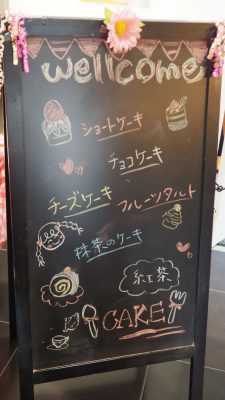 wellcome
ショートケーキ
チョコケーキ
チーズケーキ フルーツタルト
抹茶のケーキ
紅茶
CAKE